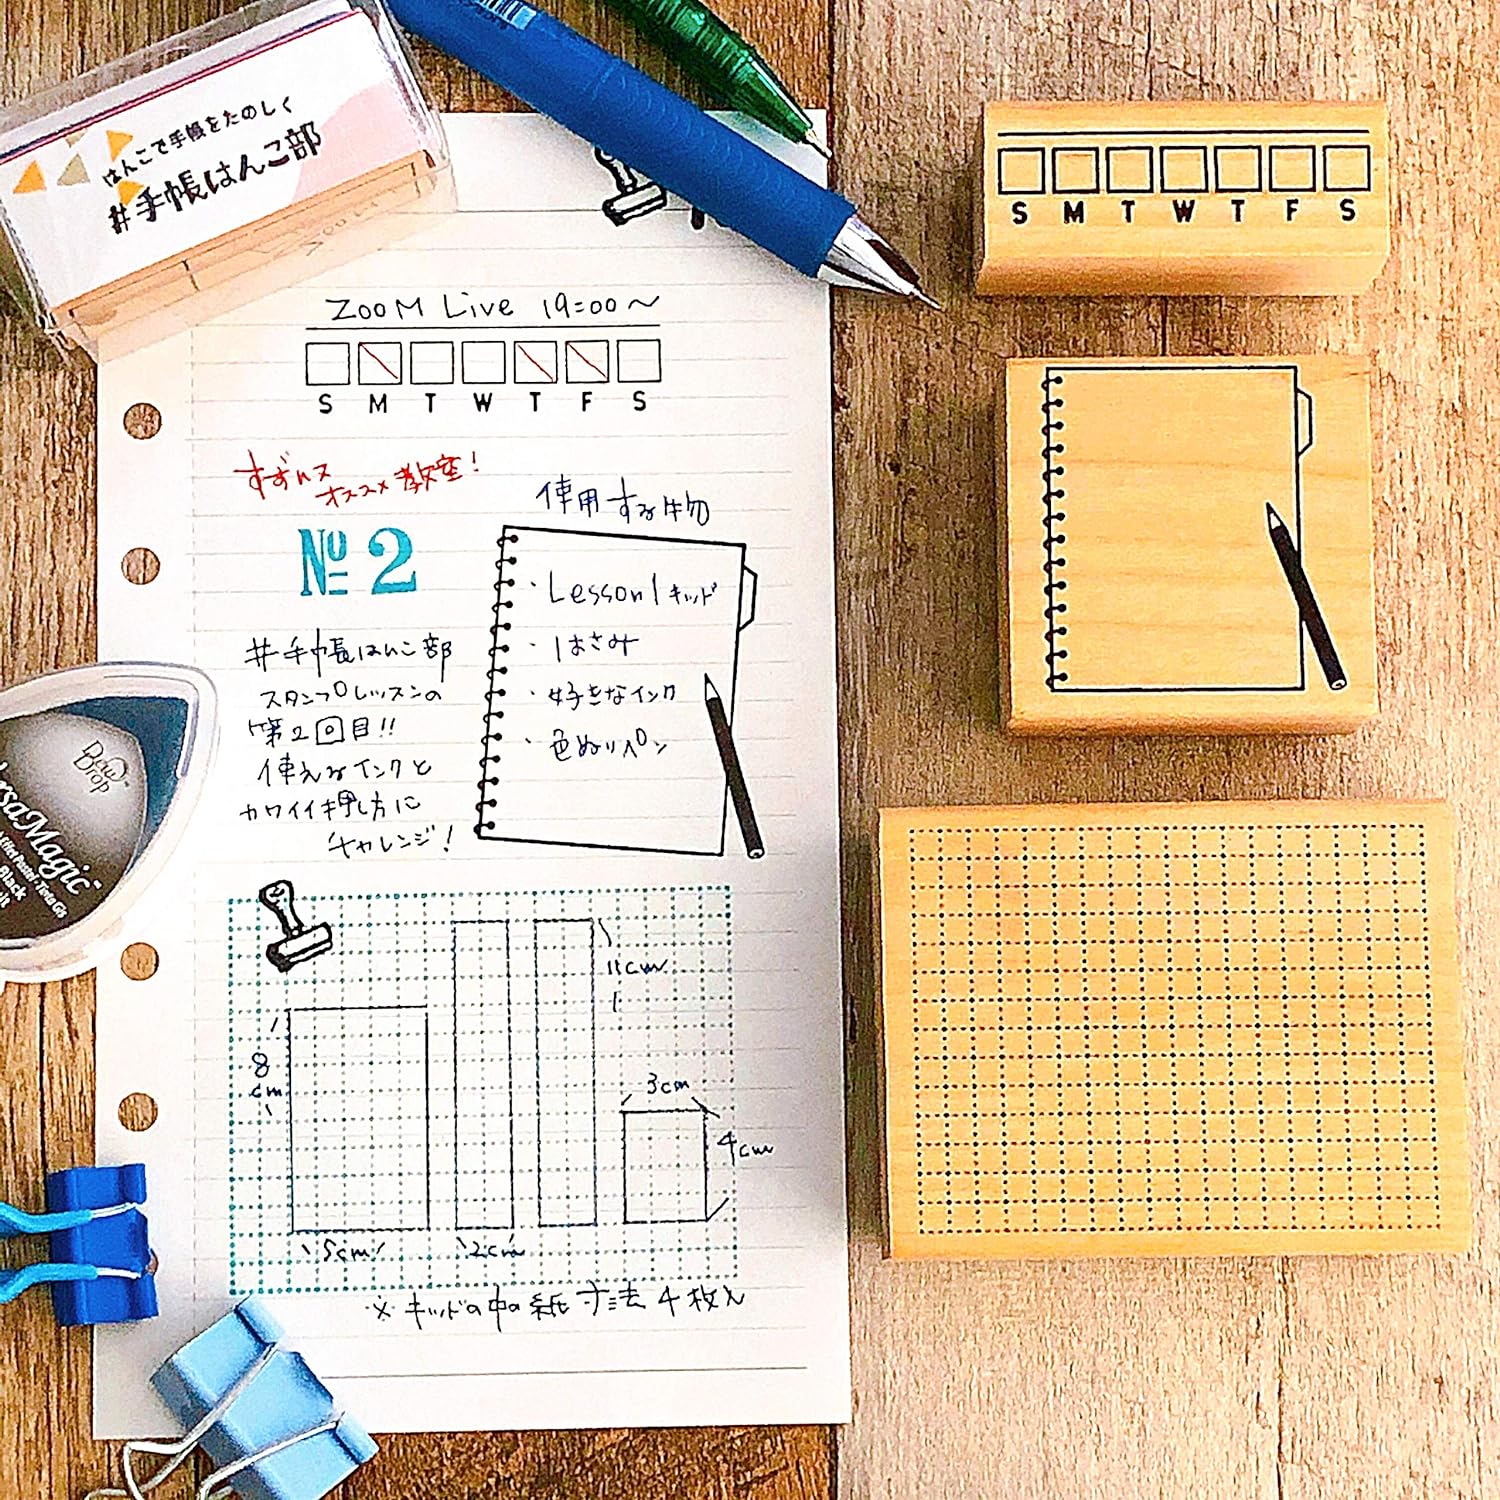 はんこで手帳をたのしく
#手帳はんこ部
S M T W T F S
ZOOM Live 19:00〜
S M T W T F S
オススメ教室!
使用する物
№ 2
・Lesson1キッド
・はさみ
・好きなインク
・色ぬりペン
#手帳はんこ部
スタンプレッスンの
第2回目!!
使えるインクと
カワイイ押し方に
チャレンジ!
Dew Drop
rsaMagic
Black
11cm
8cm
3cm
4cm
5cm
2cm
※キッドの中の紙寸法4枚入